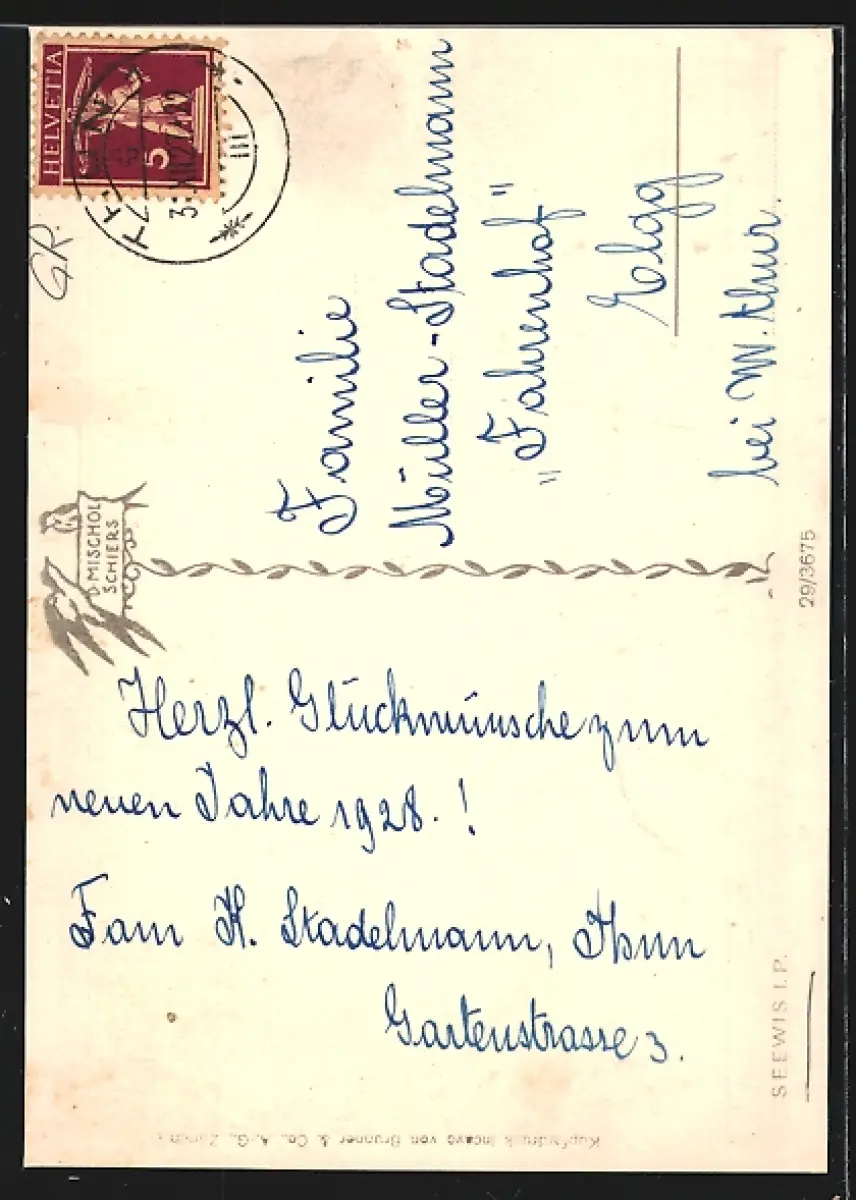 HELVETIA
5
THUN
III
GR.
D. MISCHOL
SCHIERS
Familie
Müller-Stadelmann
"Fahrenhof"
Elgg
bei W.thur.
29/3675
Herzl. Glückwünsche zum
neuen Jahre 1928.!
Fam K. Stadelmann, Thun
Gartenstrasse 3.
SEEWIS I. P.
Kupferdruck Incavo von Brunner & Co. A.-G., Zürich